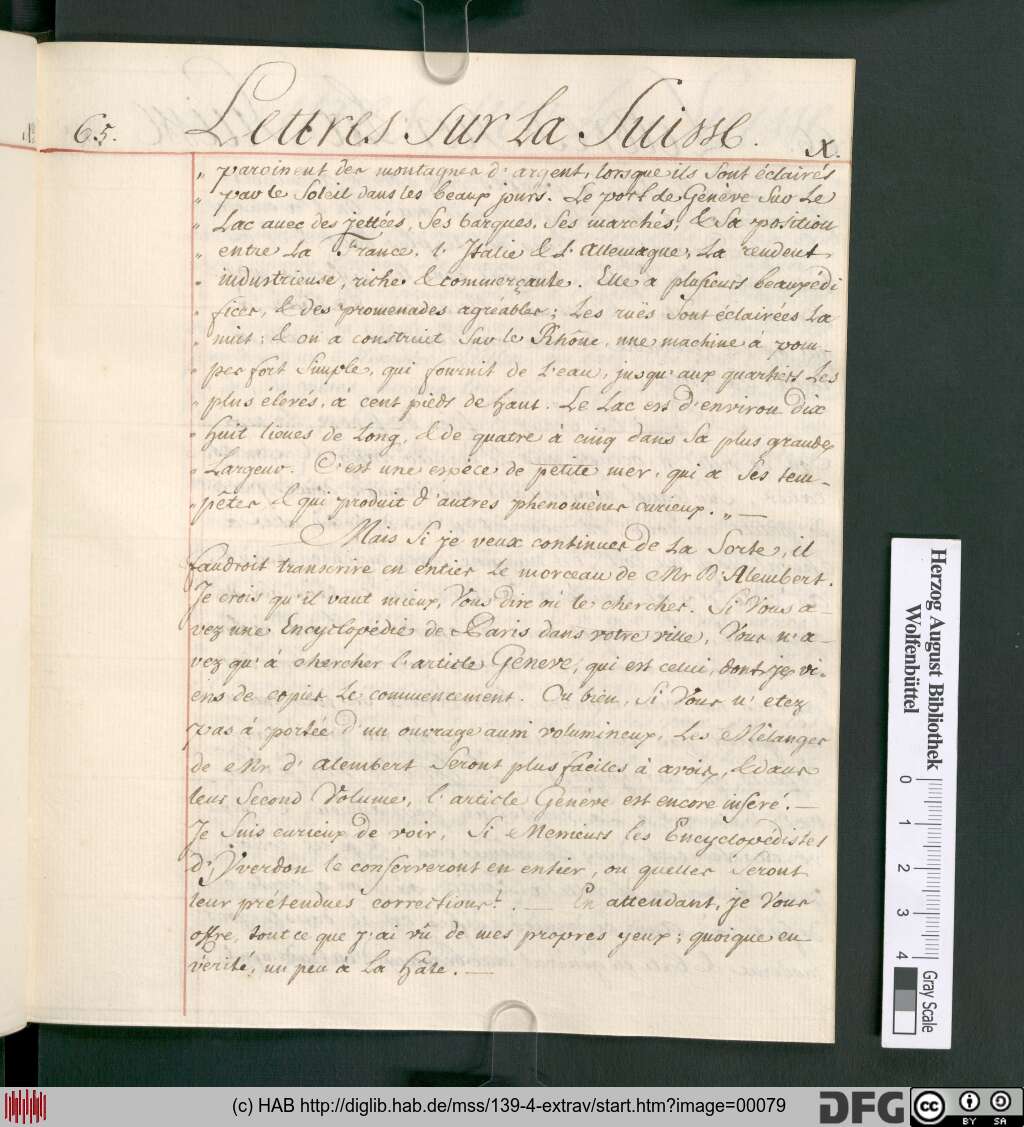 65. Lettres sur la Suisse. X.
„ paroissent des montagnes d'argent, lorsque ils sont éclairés
„ par le Soleil dans les beaux jours. Le port de Genève sur le
„ Lac avec des jettées, ses barques, ses marchés, & sa position
„ entre la France, l'Italie & l'Allemagne, la rendent
„ industrieuse, riche & commerçante. Elle a plusieurs beaux édi
„ fices, & des promenades agréables; les ruës sont éclairées la
„ nuit; & on a construit sur le Rhône, une machine à pom-
„ pes fort simple, qui fournit de l'eau, jusqu'aux quartiers les
„ plus élevés, à cent pieds de haut. Le Lac est d'environ dix
„ huit lieues de long, & de quatre à cinq dans sa plus grande
„ Largeur. C'est une espèce de petite mer, qui a ses tem-
„ pêtes & qui produit d'autres phenomènes curieux. „ —
Mais si je veux continuer de la sorte, il
faudroit transcrire en entier le morceau de Mr D'Alembert.
Je crois qu'il vaut mieux, vous dire où le chercher. Si vous a-
vez une Encyclopédie de Paris dans votre ville, vous n'a-
vez qu'à chercher l'article Geneve, qui est celui, dont je vi-
ens de copier le commencement. Ou bien, si vous n'etez
pas à portée d'un ouvrage aussi volumineux, les Mélanges
de Mr. d'Alembert seront plus faciles à avoir, & dans
leur Second Volume, l'article Genéve est encore inseré. —
Je suis curieux de voir, si Messieurs les Encyclopédistes
d'Yverdon le conserveront en entier, ou quelles seront
leur prétendues corrections. — En attendant, je vous
offre, tout ce que j'ai vû de mes propres yeux; quoique en
vérité, un peu à la hâte. —
Herzog August Bibliothek
Wolfenbüttel
0 1 2 3 4
Gray Scale
(c) HAB http://diglib.hab.de/mss/139-4-extrav/start.htm?image=00079
DFG
cc BY SA